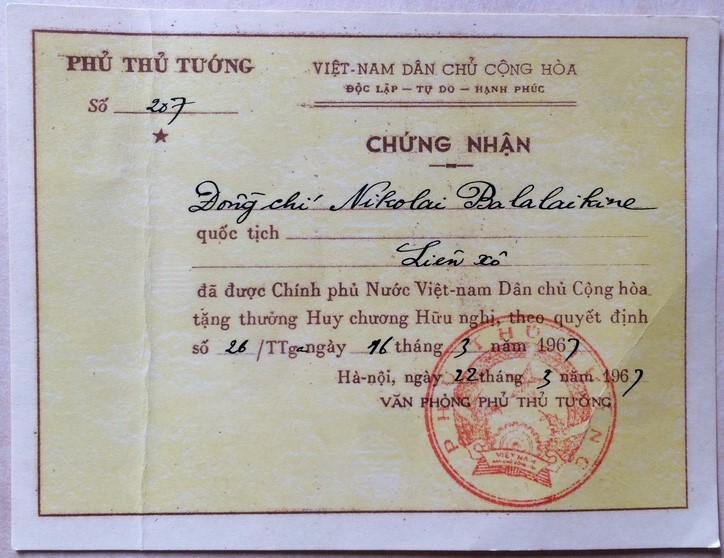 PHỦ THỦ TƯỚNG
Số 207
VIỆT-NAM DÂN CHỦ CỘNG HÒA
ĐỘC LẬP — TỰ DO — HẠNH PHÚC
CHỨNG NHẬN
Đồng chí Nikolai Balalaikine
quốc tịch
Liên xô
đã được Chính phủ Nước Việt-nam Dân chủ Cộng hòa
tặng thưởng Huy chương Hữu nghị, theo quyết định
số 26 /TTga ngày 16 tháng 3 năm 1967
Hà-nội, ngày 22 tháng 3 năm 1967
VĂN PHÒNG PHỦ THỦ TƯỚNG
PHỦ THỦ TƯỚNG
VIỆT NAM